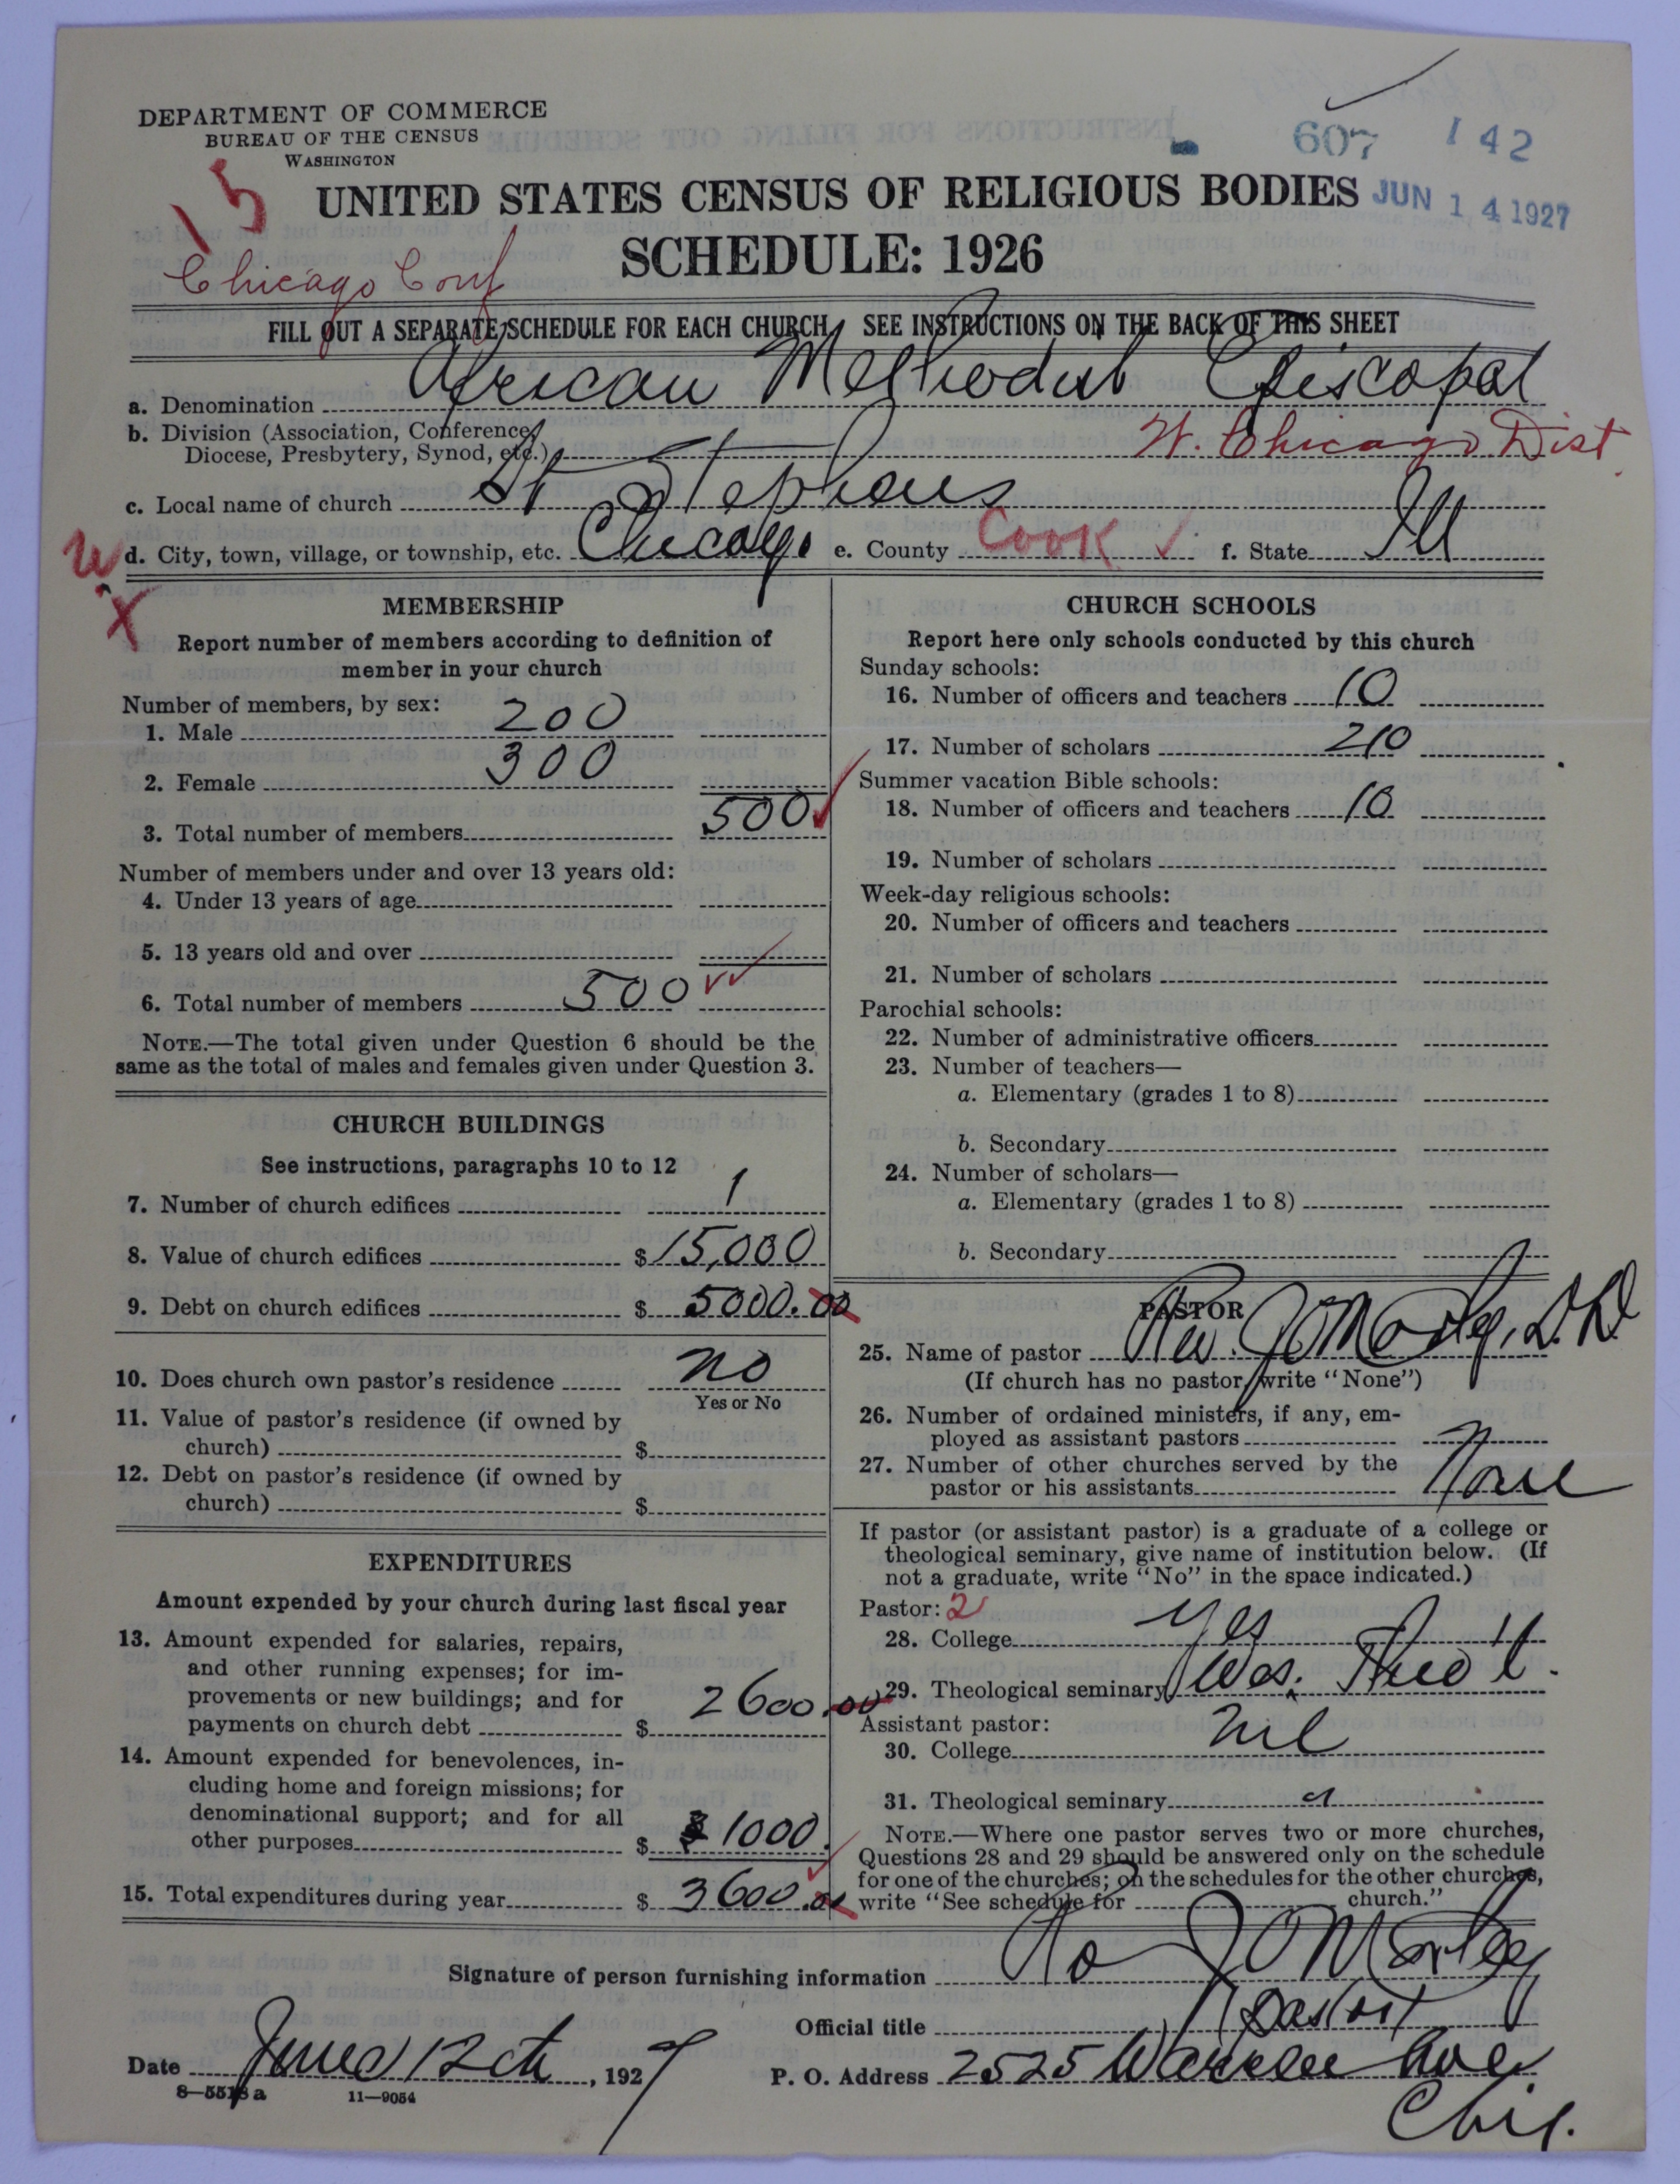 DEPARTMENT OF COMMERCE
BUREAU OF THE CENSUS
WASHINGTON
607 142
15
UNITED STATES CENSUS OF RELIGIOUS BODIES
JUN 14 1927
SCHEDULE: 1926
Chicago Conf
FILL OUT A SEPARATE SCHEDULE FOR EACH CHURCH SEE INSTRUCTIONS ON THE BACK OF THIS SHEET
a. Denomination African Methodist Episcopal
b. Division (Association, Conference,
Diocese, Presbytery, Synod, etc.) W. Chicago Dist.
c. Local name of church St Stephens
W d. City, town, village, or township, etc. Chicago e. County Cook ✓ f. State Ill
X
MEMBERSHIP
Report number of members according to definition of
member in your church
Number of members, by sex:
1. Male 200
2. Female 300
3. Total number of members 500 ✓
Number of members under and over 13 years old:
4. Under 13 years of age
5. 13 years old and over
6. Total number of members 500 ✓✓
NOTE.—The total given under Question 6 should be the
same as the total of males and females given under Question 3.
CHURCH BUILDINGS
See instructions, paragraphs 10 to 12
7. Number of church edifices 1
8. Value of church edifices $ 15,000
9. Debt on church edifices $ 5000.00
10. Does church own pastor's residence no
Yes or No
11. Value of pastor's residence (if owned by
church) $
12. Debt on pastor's residence (if owned by
church) $
EXPENDITURES
Amount expended by your church during last fiscal year
13. Amount expended for salaries, repairs,
and other running expenses; for im-
provements or new buildings; and for
payments on church debt $ 2600.00
14. Amount expended for benevolences, in-
cluding home and foreign missions; for
denominational support; and for all
other purposes $ $1000.
15. Total expenditures during year $ 3600.00
CHURCH SCHOOLS
Report here only schools conducted by this church
Sunday schools:
16. Number of officers and teachers 10
17. Number of scholars 210
Summer vacation Bible schools:
18. Number of officers and teachers 10
19. Number of scholars
Week-day religious schools:
20. Number of officers and teachers
21. Number of scholars
Parochial schools:
22. Number of administrative officers
23. Number of teachers—
a. Elementary (grades 1 to 8)
b. Secondary
24. Number of scholars—
a. Elementary (grades 1 to 8)
b. Secondary
PASTOR
25. Name of pastor Rev. J O Morley, D.D
(If church has no pastor, write "None")
26. Number of ordained ministers, if any, em-
ployed as assistant pastors
27. Number of other churches served by the
pastor or his assistants None
If pastor (or assistant pastor) is a graduate of a college or
theological seminary, give name of institution below. (If
not a graduate, write "No" in the space indicated.)
Pastor: 2
28. College Yes
29. Theological seminary Wes. Theo'l.
Assistant pastor:
30. College nil
31. Theological seminary
NOTE.—Where one pastor serves two or more churches,
Questions 28 and 29 should be answered only on the schedule
for one of the churches; on the schedules for the other churches,
write "See schedule for church."
Signature of person furnishing information J O Morley
Official title Pastor
Date June 12th, 1927 P. O. Address 2525 Warren Ave
8—5518a 11—9054
Chi.